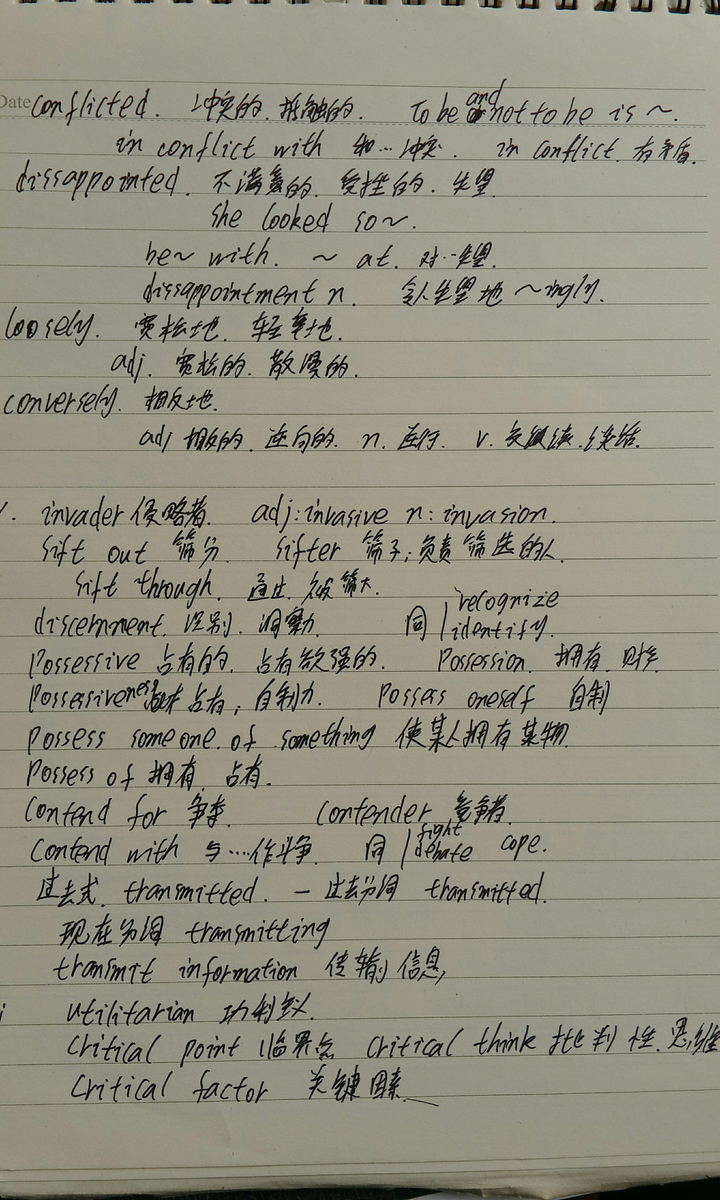 Date conflicted. 冲突的. 抵触的. To be and not to be is ~.
in conflict with 和…冲突. in conflict. 有矛盾.
dissappointed. 不满意的. 受挫的. 失望
she looked so ~.
be ~ with. ~ at. 对…失望.
dissappointment n. 令人失望地 ~ingly.
loosely. 宽松地. 轻率地.
adj. 宽松的. 散漫的.
conversely. 相反地.
adj 相反的. 逆向的. n. 逆行. v. 谈话.
invader 侵略者. adj: invasive n: invasion.
sift out 筛分 sifter 筛子; 负责筛选的人.
sift through. 通过. 筛
discernment. 识别. 洞察力. 同 recognize
identify.
Possessive 占有的. 占有欲强的. Possession. 拥有. 财产
Possessiveness 占有; 自制力. Possess oneself 自制
Possess someone of something 使某人拥有某物.
Possess of 拥有. 占有.
Contend for 争夺. Contender 竞争者.
Contend with 与…作斗争. 同 fight debate cope.
过去式. transmitted. — 过去分词 transmitted.
现在分词 transmitting
transmit information 传输信息,
utilitarian 功利主义.
Critical point 临界点. Critical think 批判性. 思维
Critical factor 关键因素.